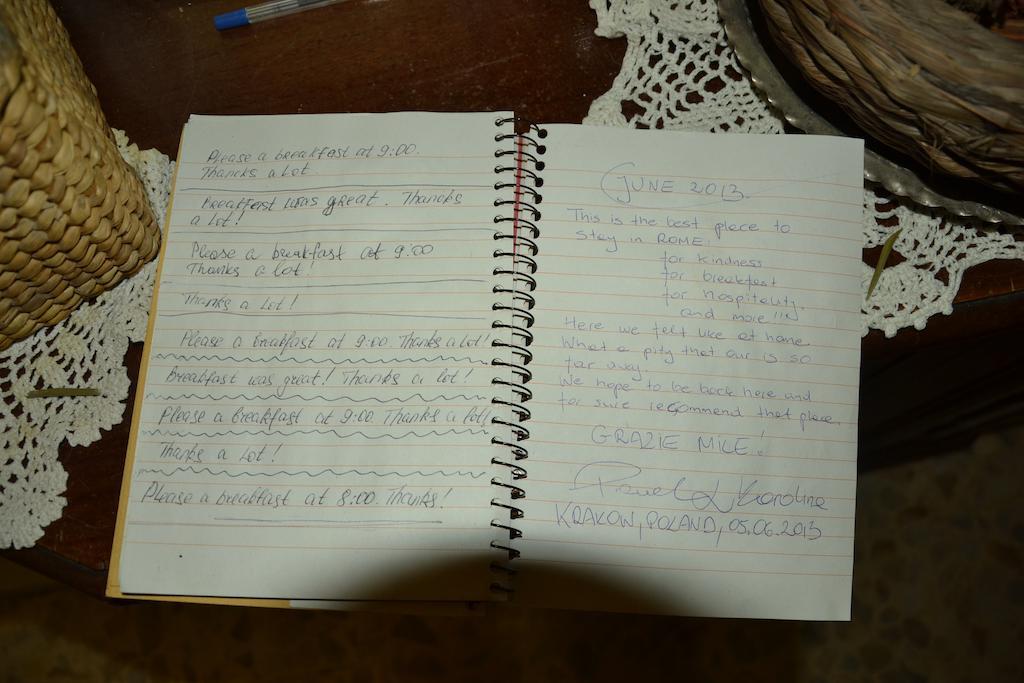 Please a breakfast at 9:00.
Thancks a lot.
Breakfast was great. Thancks
a lot!
Please a breakfast at 9:00
Thanks a lot!
Thanks a Lot!
Please a breakfast at 9:00. Thanks a lot!
Breakfast was great! Thanks a lot!
Please a breakfast at 9:00. Thanks a lot!
Thanks a Lot!
Please a breakfast at 8:00. Thanks!
JUNE 2013.
This is the best place to
stay in ROME:
for kindness
for breakfast
for hospitality
and more !!!
Here we felt like at home.
What a pity that our is so
far away.
We hope to be back here and
for sure recommend that place.
GRAZIE MILE!
Pawel & Karolina
KRAKOW, POLAND, 05.06.2013